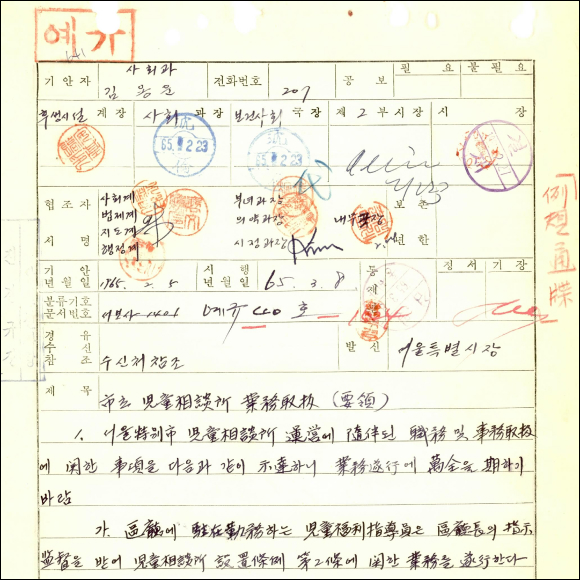 예가
기안자 사회과 전화번호 207 공보 필요 불필요
김
후생시설 계장 사회 과장 보건사회 국장 제2부시장 시 장
65. 2 23
협조자 사회계 부녀과장 보존
법제계 의약과장 내무국장
지도계
서명 행정계 시정과장 년한
기안 년월일 1965. 2. 5 시행 년월일 65. 3. 8. 등재 정서 기장
분류기호 문서번호 서보사 1406 예규 440 호
경유 수신 참조 수신처참조 발신 서울특별시장
제목 市立 児童相談所 業務取扱 (要領)
1. 서울特別市 児童相談所 運営에 隨伴된 職務 및 事務取扱
에 関한 事項을 다음과 같이 示達하니 業務遂行에 萬全을 期하기
바람
가. 區廳에 駐在勤務하는 児童福利指導員은 區廳長의 指示
監督을 받어 児童相談所 設置條例 第2條에 関한 業務를 遂行한다
例規通牒